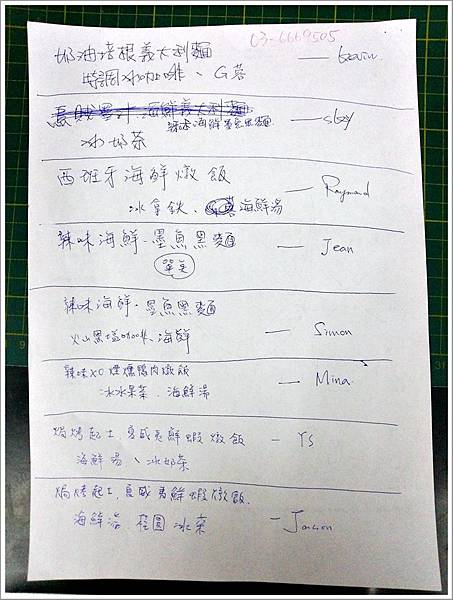 03-6669505
奶油培根義大利麵 — Kevin
特調冰咖啡、G蓉
辣味海鮮墨魚黑麵
冰奶茶
西班牙海鮮燉飯 — Raymond
冰拿鐵、海鮮湯
辣味海鮮.墨魚黑麵 — Jean
單点
辣味海鮮.墨魚黑麵
火山黑塩咖啡、海鮮 — Simon
辣味XO煙燻鴨肉燉飯 — Mina
冰水果茶.海鮮湯
焗烤起士.夏威夷鮮蝦燉飯 — YS
海鮮湯、冰奶茶
焗烤起士.夏威夷鮮蝦燉飯.
海鮮湯 桂圓冰茶 — Jackson